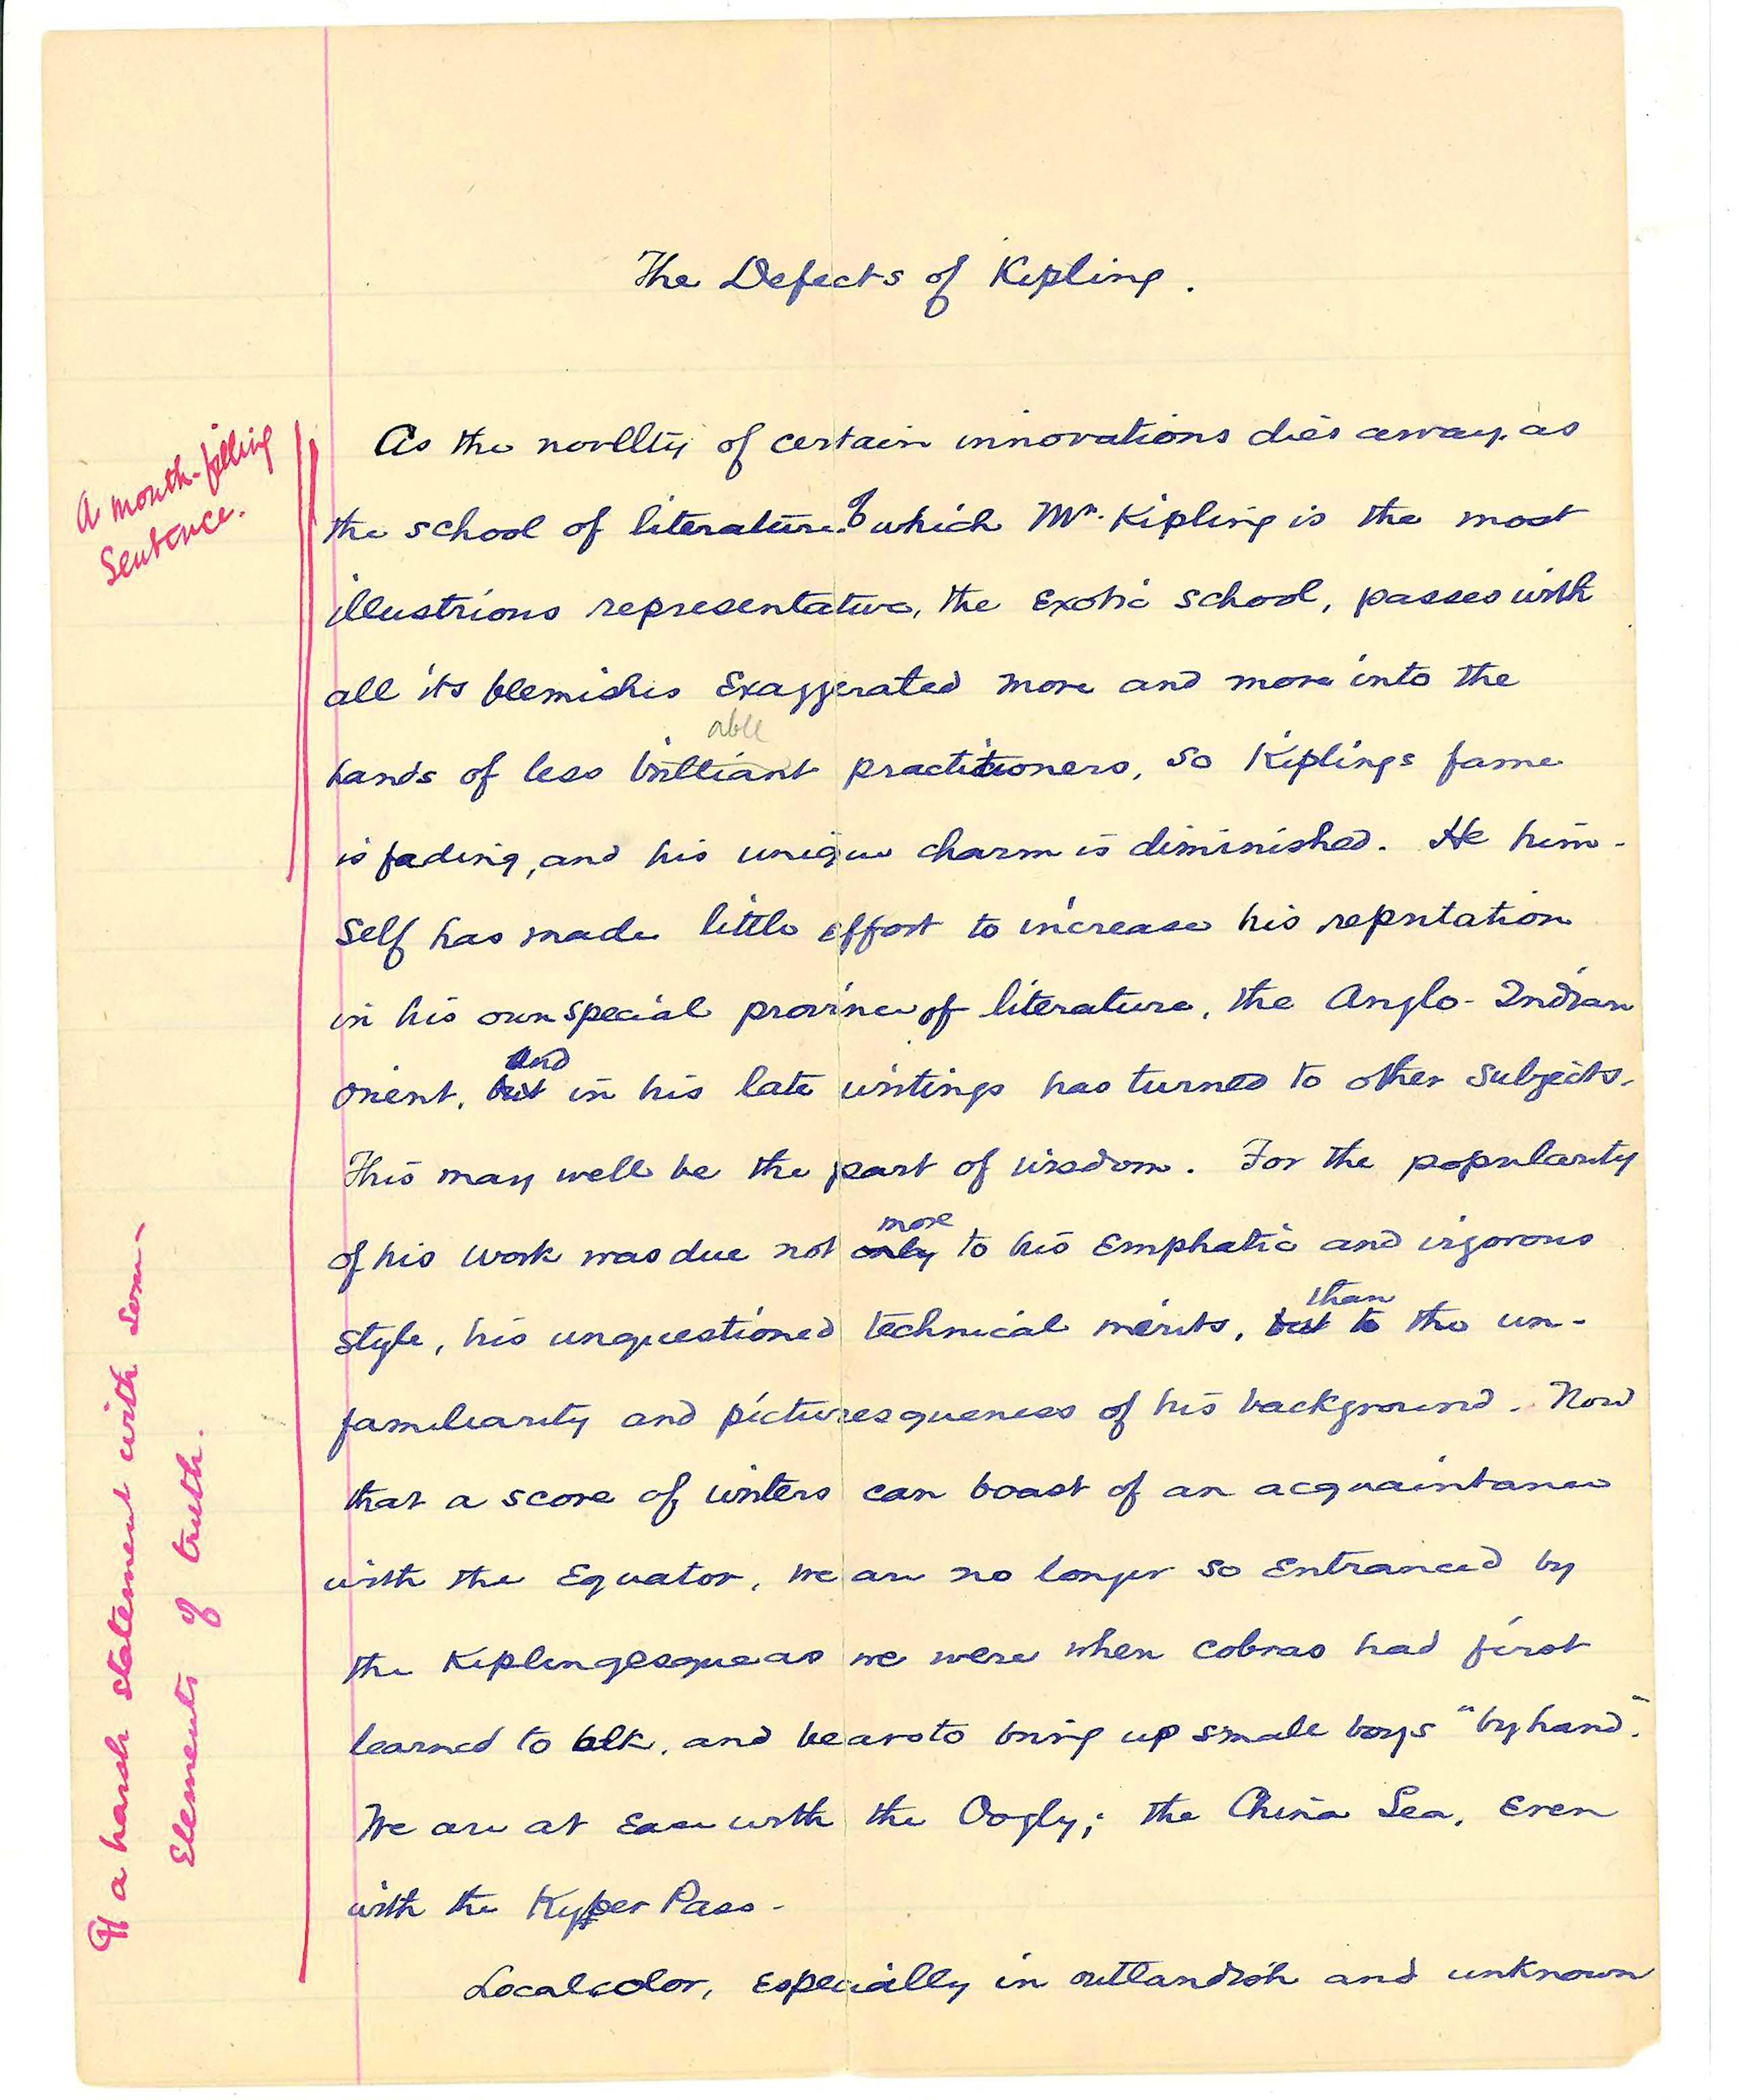 The Defects of Kipling.
A mouth-filling
Sentence.
As the novelty of certain innovations dies away, as
the school of literature of which Mr. Kipling is the most
illustrious representative, the exotic school, passes with
all its blemishes exaggerated more and more into the
able
hands of less brilliant practitioners, so Kiplings fame
is fading, and his unique charm is diminished. He him-
self has made little effort to increase his reputation
in his own special province of literature, the Anglo-Indian
and
orient, but in his late writings has turned to other subjects.
This may well be the part of wisdom. For the popularity
more
of his work was due not only to his emphatic and vigorous
than
style, his unquestioned technical merits, but to the un-
familiarity and picturesqueness of his background. Now
that a score of writers can boast of an acquaintance
with the Equator, we are no longer so entranced by
the Kiplingesque as we were when cobras had first
learned to talk, and bears to bring up small boys "by hand".
We are at ease with the Oogly; the China Sea, even
with the Kyber Pass.
Local color, especially in outlandish and unknown
a harsh statement with som-
Elements of truth.